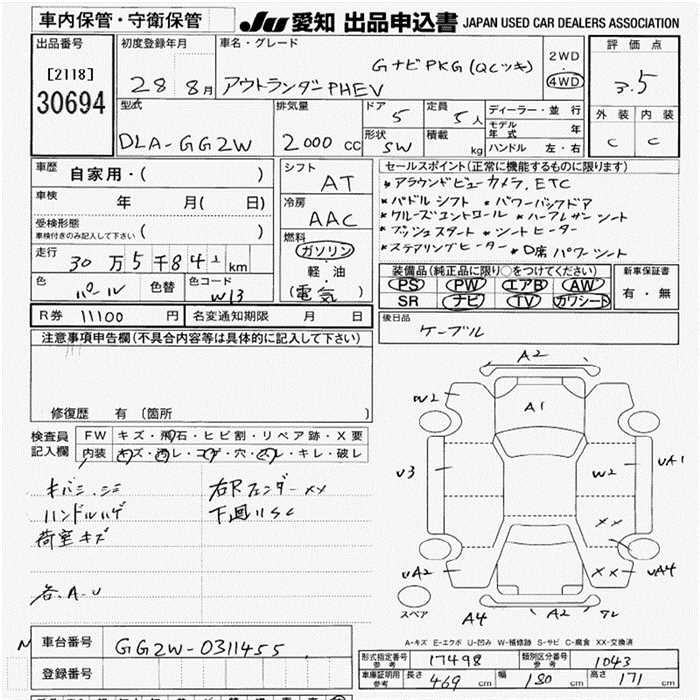 車内保管・守衛保管
JU 愛知 出品申込書 JAPAN USED CAR DEALERS ASSOCIATION
出品番号
[2118]
30694
初度登録年月
28 8月
車名・グレード
GナビPKG(QCツキ)
アウトランダーPHEV
2WD
・
4WD
評価点
3.5
外装 内装
C C
型式
DLA-GG2W
排気量
2000 cc
ドア
5
定員
5人
形状
SW
積載
kg
ディーラー・並行
モデル年式 年
ハンドル 左・右
車歴 自家用・( )
車検 年 月( 日)
受検形態
車検付きのみ記入して下さい ( )
走行 30万5千84 km
色 パール 色替 色コード W13
シフト
AT
冷房
AAC
燃料
ガソリン
軽油
(電気)
セールスポイント(正常に機能するものに限ります)
*アラウンドビューカメラ,ETC
*パドルシフト *パワーバックドア
*クルーズコントロール *ハーフレザーシート
*プッシュスタート *シートヒーター
*ステアリングヒーター *D席パワーシート
装備品(純正品に限り○をつけてください)
PS PW エアB AW
SR ナビ TV カワシート
新車保証書
有・無
R券 11100 円 名変通知期限 月 日
後日品
ケーブル
注意事項申告欄(不具合内容等は具体的に記入して下さい)
修復歴 有 〔箇所 〕
検査員
記入欄
FW キズ・飛石・ヒビ割・リペア跡・X要
内装 キズ・汚レ・コゲ・穴・スレ・キレ・破レ
キバミ.シミ 右Rフェンダーxx
ハンドルハゲ 下廻りSC
荷室キズ
各.A-U
A2
W2
A1
U3
W2
UA1
XX
UA2
XX
UA4
A4
A2
スペア
A-キズ E-エクボ U-凹み W-補修跡 S-サビ C-腐食 XX-交換済
車台番号 GG2W-0311455
登録番号
形式指定番号 参考 17498 類別区分番号 参考 1043
車庫証明用 参考 長さ 469 cm 幅 180 cm 高さ 171 cm